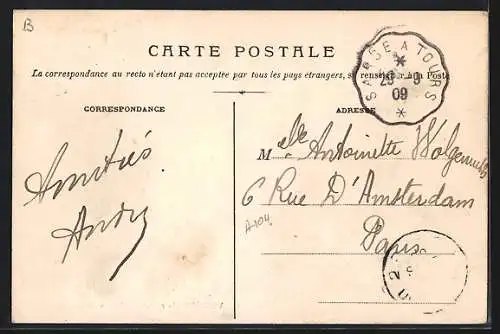 B
CARTE POSTALE
La correspondance au recto n'étant pas acceptée par tous les pays étrangers, se renseigner à la Poste
SARGE A TOURS
*
25 9
09
*
CORRESPONDANCE
ADRESSE
Amitiés
André
Melle Antoinette
6 Rue D'Amsterdam
A-104
Paris